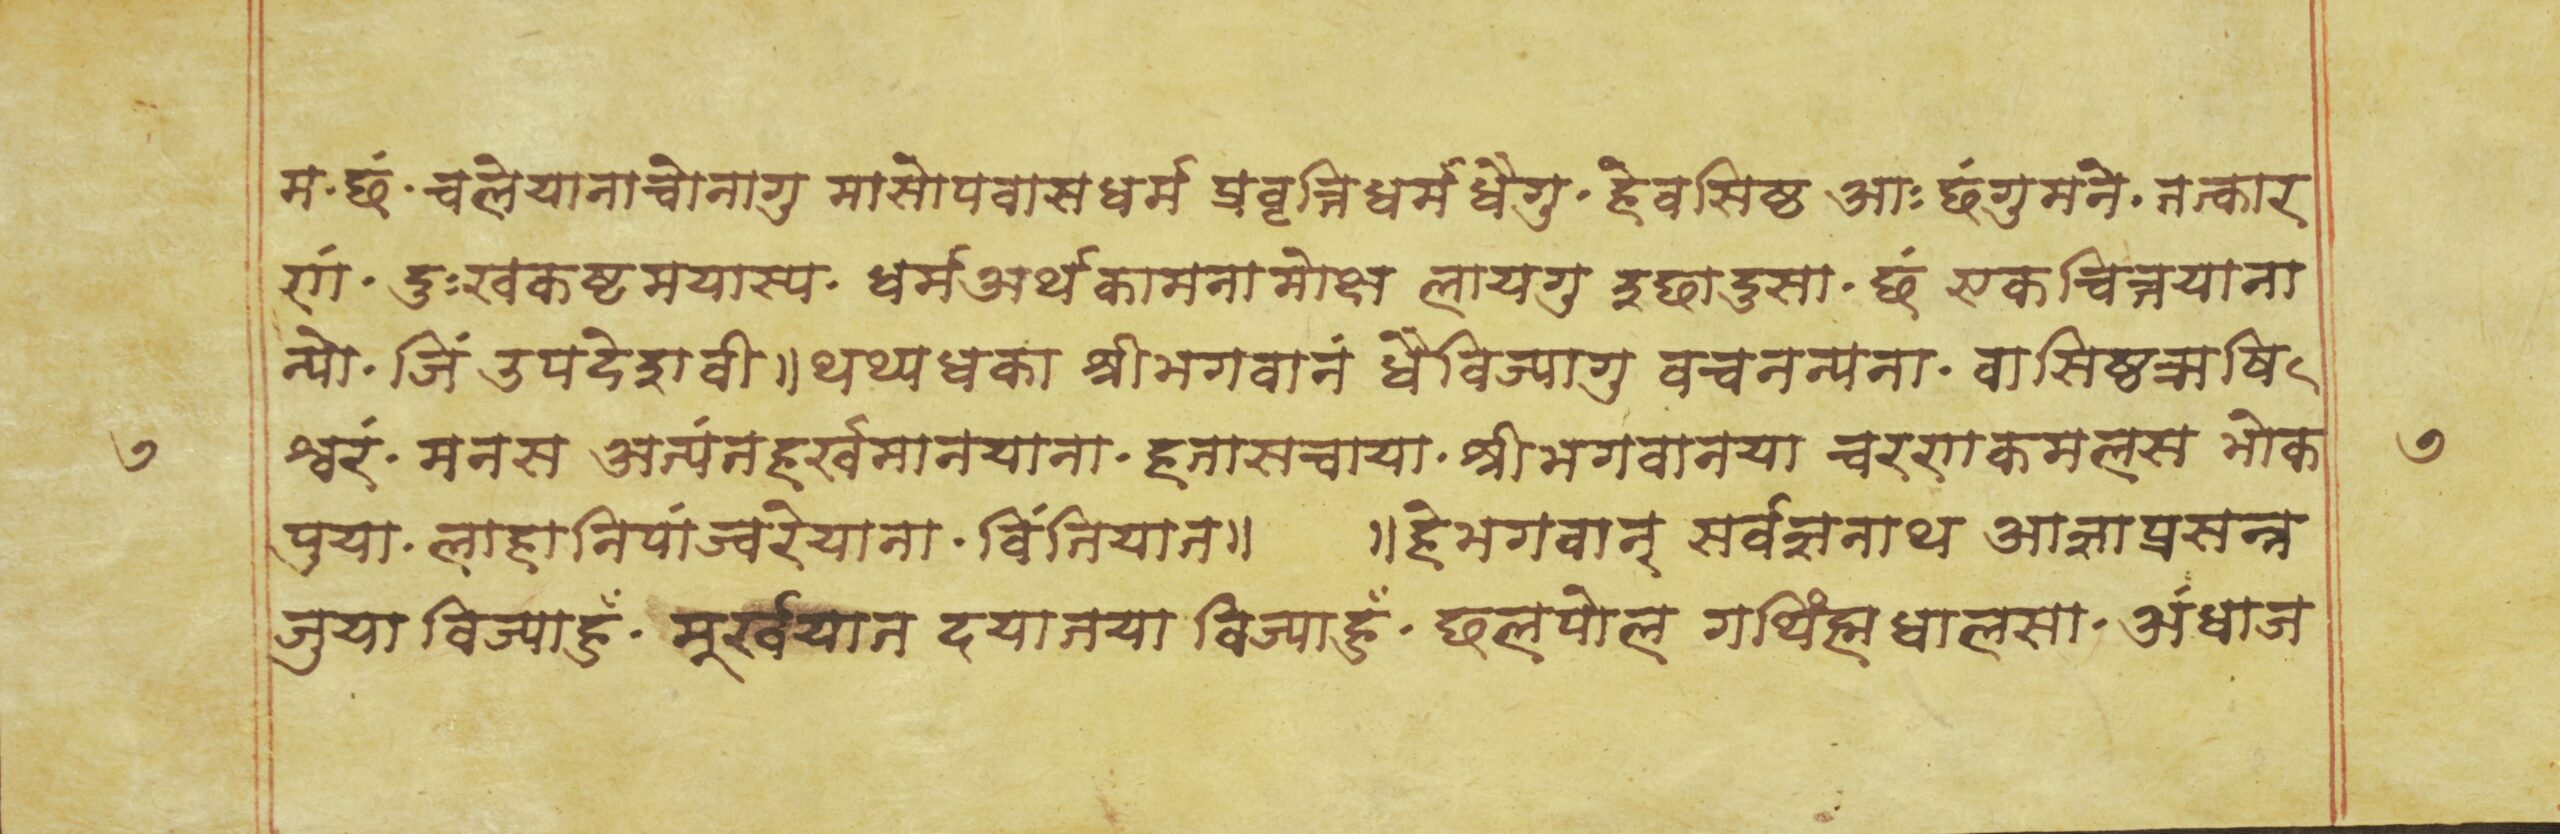 म· छं· चलेयानाचोनागु मासोपवासधर्म प्रवृत्तिधर्म धैगु· हेवसिष्ठ आः छंगुमने· तत्कार
णं· दुःखकष्टमयास्य· धर्मअर्थकामनामोक्ष लायगु इछादुसा· छं एकचित्तयाना
न्यो· जिं उपदेशवी॥ थथ्यधका श्रीभगवानं धैविज्यागु वचनन्यना· वासिष्ठऋषि
श्वरं· मनस अत्यंतहर्खमानयाना· हनासचाया· श्रीभगवानया चरणकमलस भोक
७ ७
पुया· लाहानिपांज्वरेयाना· विंतियात॥ ॥हेभगवान् सर्वज्ञनाथ आज्ञाप्रसन्न
जुया विज्याहुँ· मूर्खयात दयातया विज्याहुँ· छलपोल गथिंह्मधालसा· अंधाज